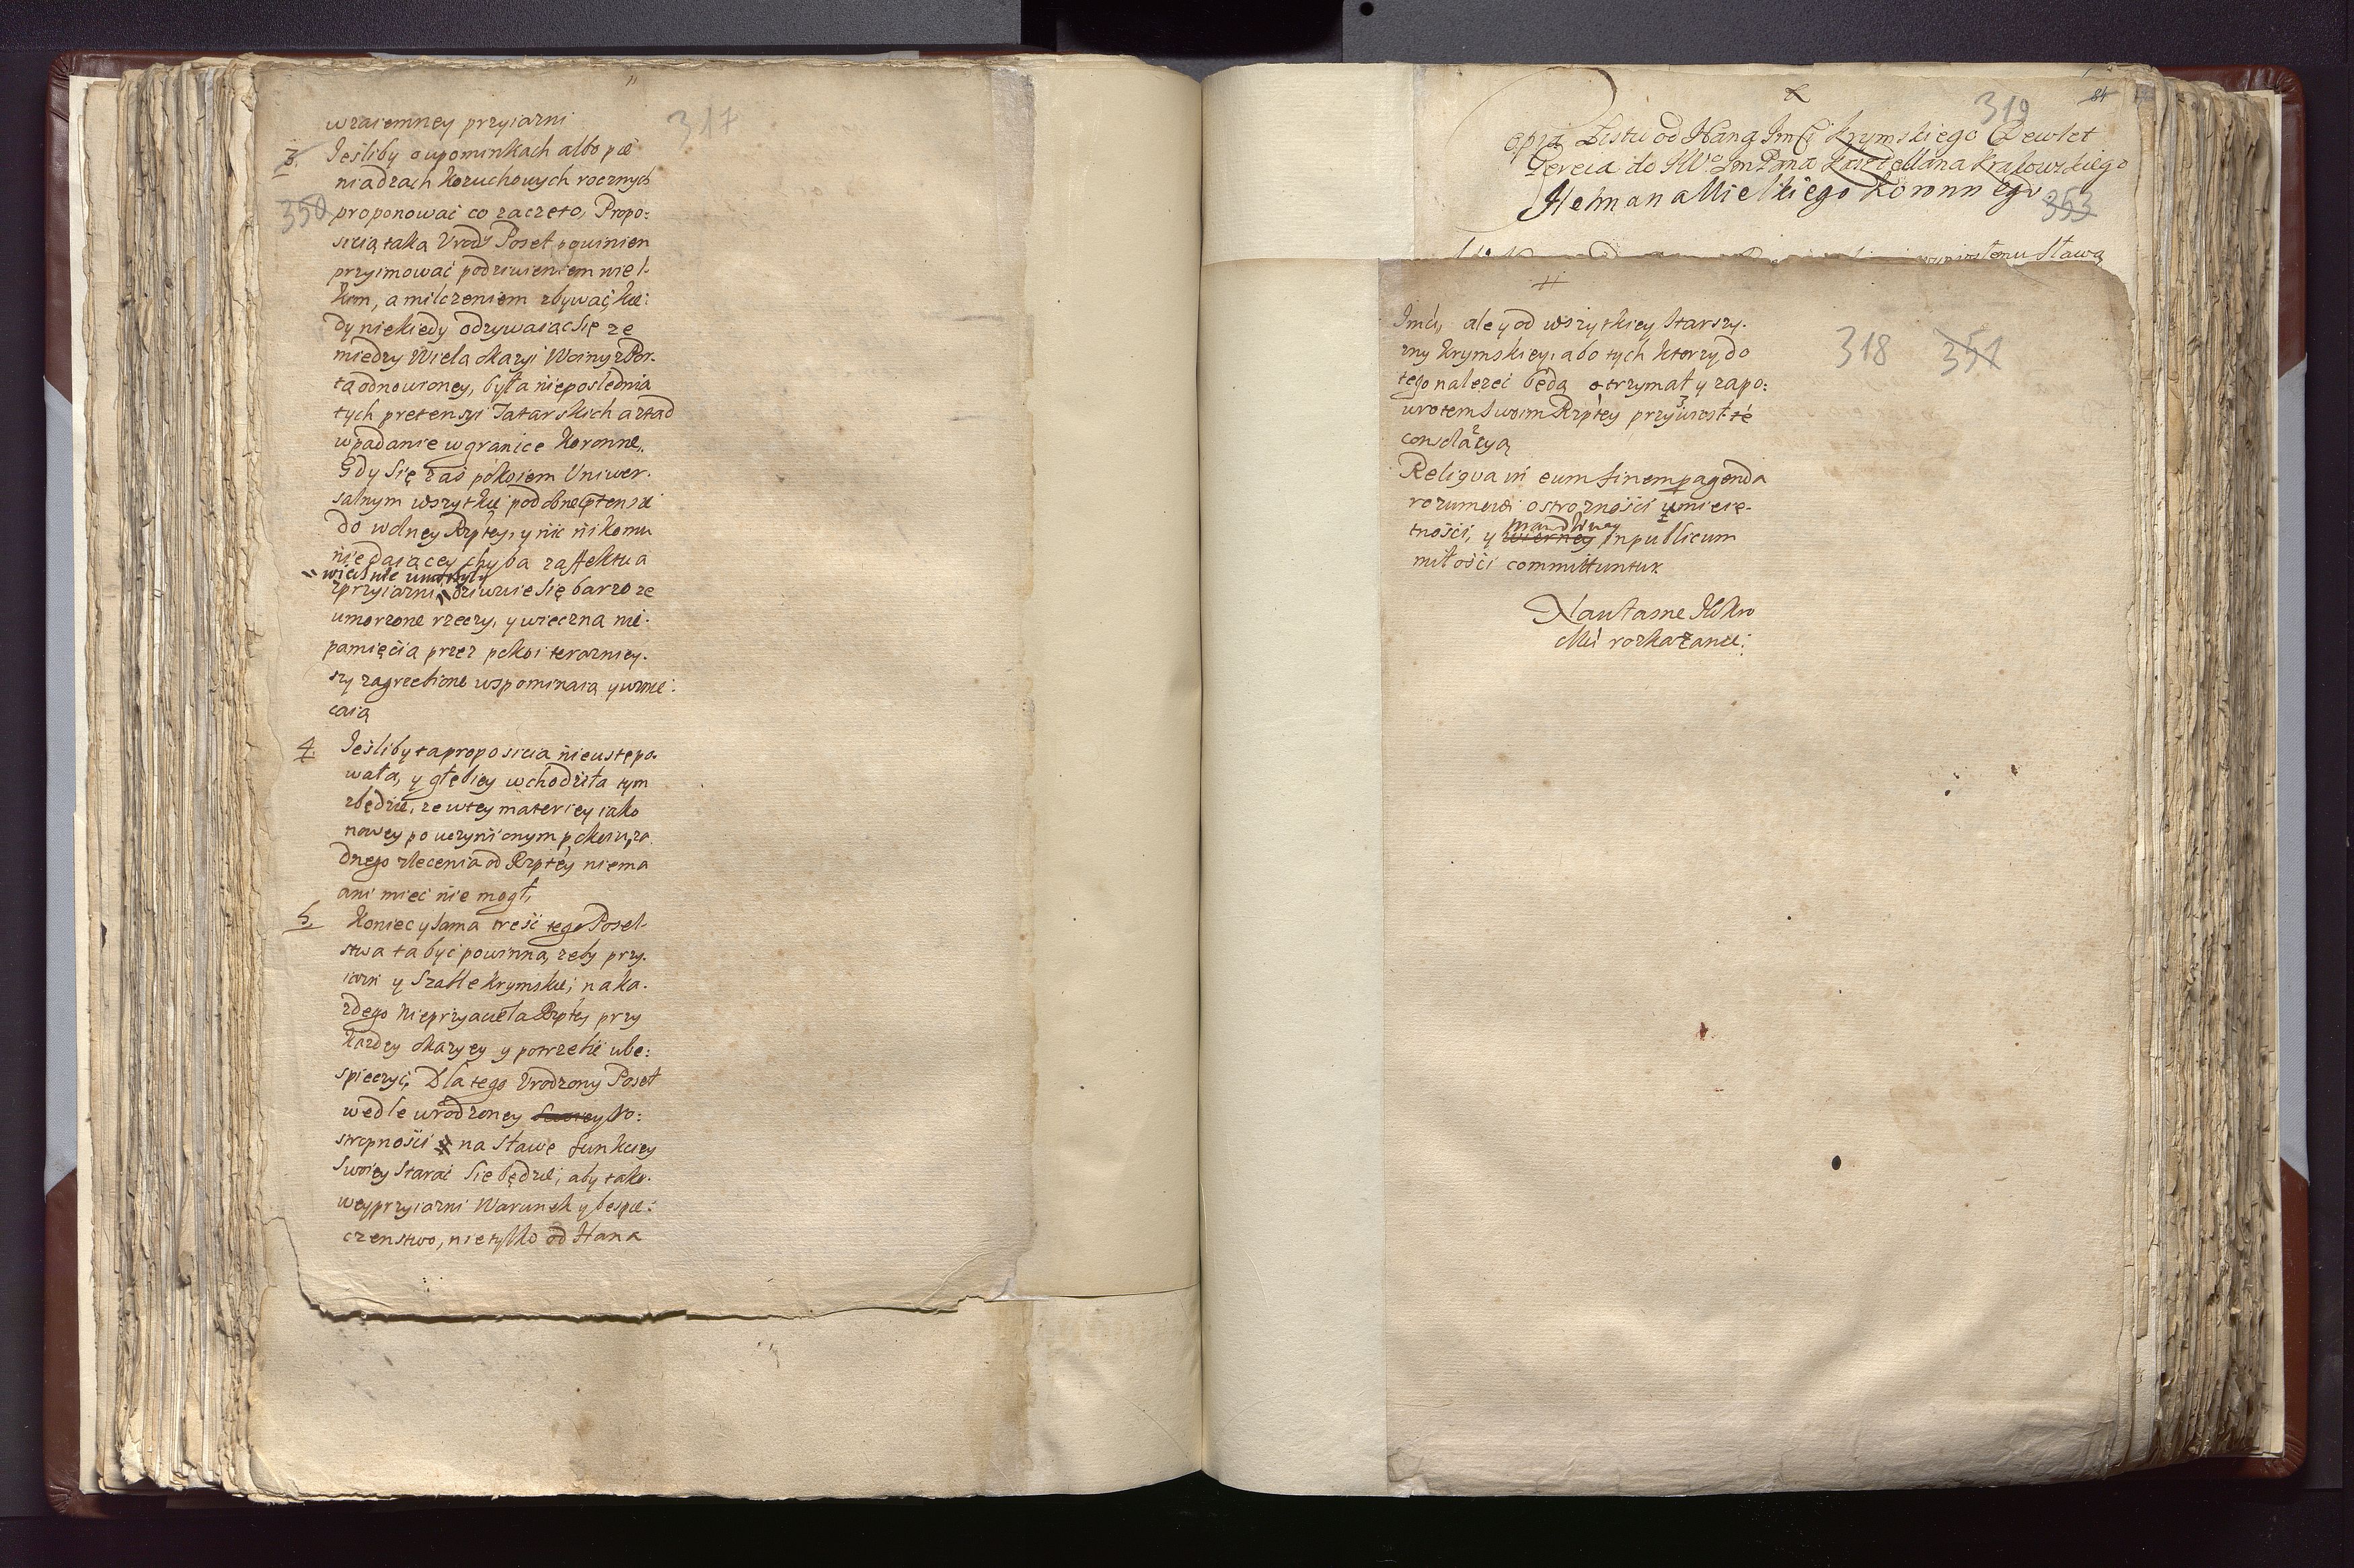 317
wzaiemney przyiazni
3. Jeśliby o upominkach albo pie
niadzach Kozuchowych rocznych
350 proponować co zaczeto, Propo:
sicią taka Urod. Poseł powinien
przyimować podziwieniem wiel-
kim, a milczeniem zbywać, kie:
dy niekiedy odzywaiąc się ze
miedzy Wiela okazyi Woiny z Por-
tą odnowioney, była nieposlednia
tych pretensyi Tatarskich a ztąd
wpadanie w granice Koronne,
Gdy się zaś pokoiem Uniwer-
salnym wszytkie podobne ptensie
do wolney Rzptey, y nic nikomu
nie daiącey chyba z affektu a
wiecznie umorzyły
z przyiazni, dziwuie się barzo ze
umorzone rzeczy, y wieczna nie-
pamięcia przez pokoi terazniey-
szy zagrzebione wspominaią y wznie:
caią
4. Jeśliby ta proposicia nieustepo-
wała, y głebiey wchodziła tym
zbędzie, ze w tey materiey iako
nowey po uczynionym pokoiu, za
dnego zlecenia od Rzptey niema
ani mieć nie mogł,
5. Koniec y sama treść tego Posel-
stwa ta być powinna, zeby przy-
iazn y Szable krymskie, na ka-
zdego Nieprzyaciela Rzptey przy
kazdey okazyey y potrzebie ube:
spieczyć, Dla tego Urodzony Poseł
wedle urodzoney Ro:
stropności na Sławe funkciey
Swoiey Starać Sie będzie, aby tako-
wey przyiazni Warunek y bespie:
czenstwo, nie tylko od Hana
319 84
Copia Listu od Hana Jmści Krymskiego Dewlet
Gereia do JWo Jm Pana Kasztellana Krakowskiego
Hetmana Wielkiego Koronnego 353
Sławą
318 351
Jmci, ale y od wszytkiey Starszy-
zny Krymskiey, abo tych ktorzy do
tego nalezeć będą otrzymał y zapo:
wrotem Swoim Rzptey przyniosł tę
consolatyą
Reliqua in eum finem pagenda
rozumowi ostroznośći y umieię-
tnośći, y prawdziwey wierney in publicum
miłośći committuntur
Na własne JKo
Mći rozkazanie: